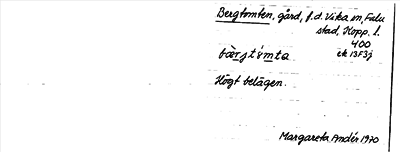 Bergtomten, gård, f.d. Vika sn, Falu
stad, Kopp. l.
400
ek 13F3j
bàrjtómta
Högt belägen.
Margareta Andér 1970